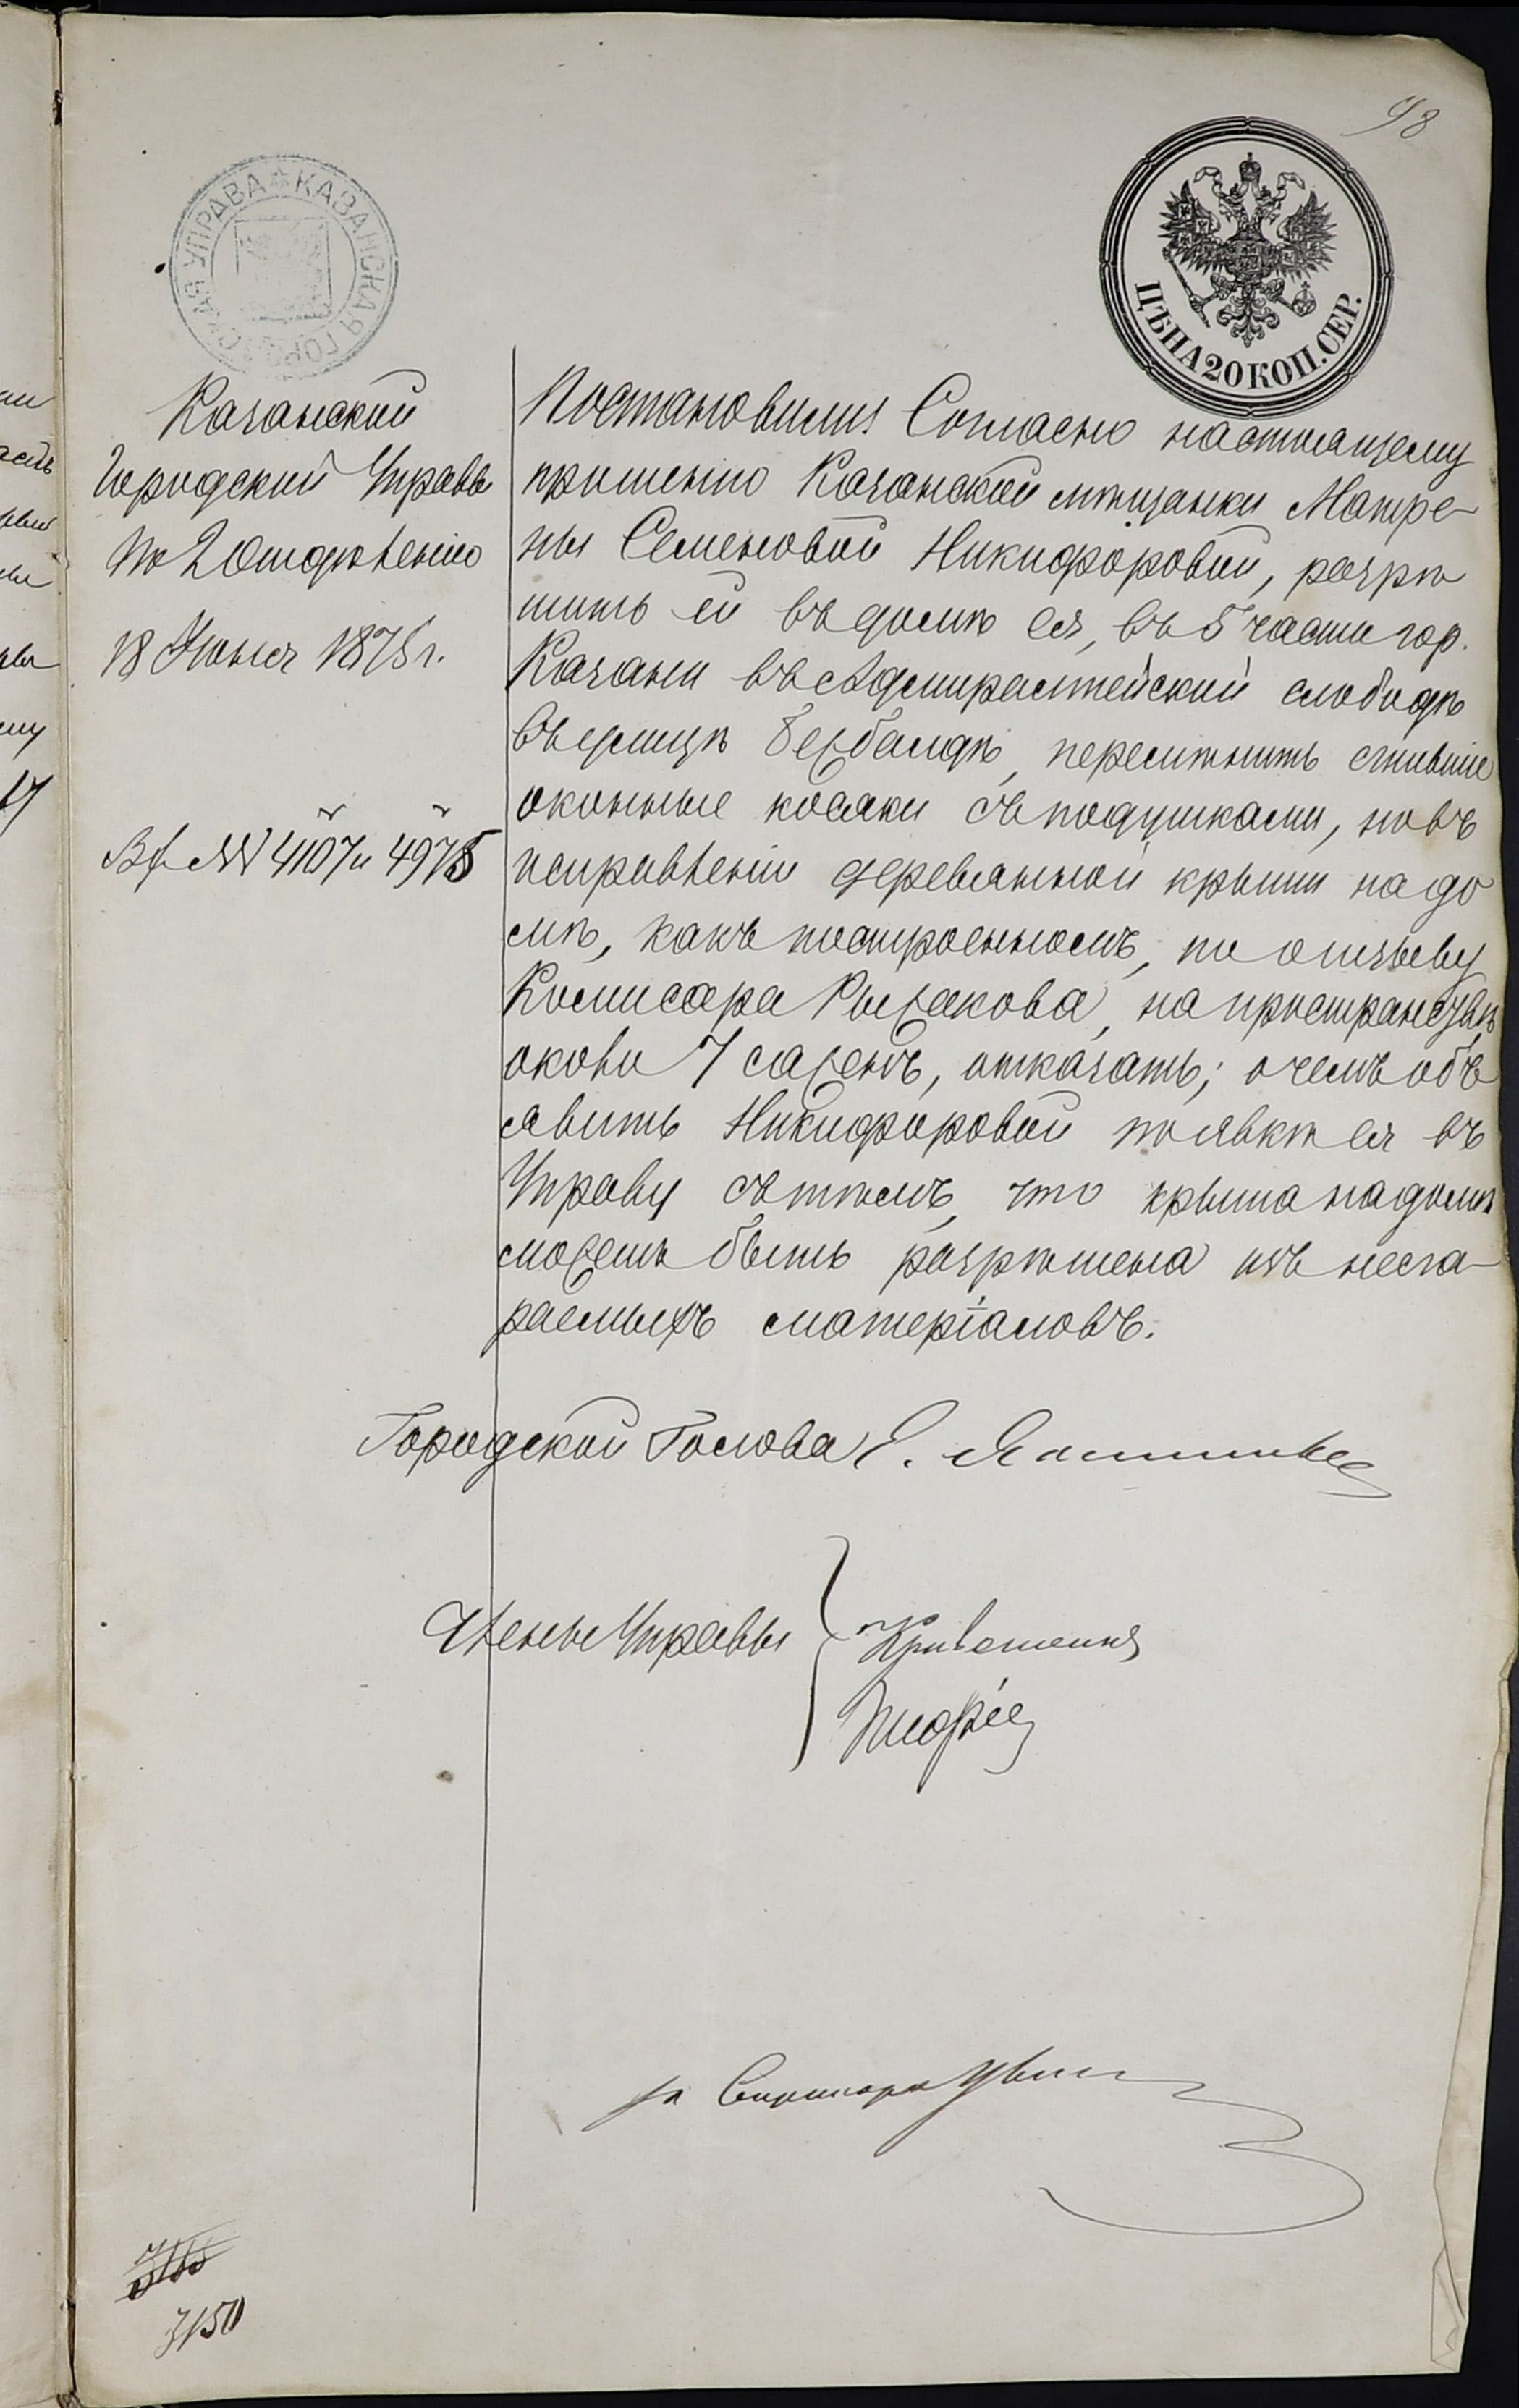 98
КАЗАНСКАЯ ГОРОДСКАЯ УПРАВА
ЦѢНА 20 КОП. СЕР.
Казанской
Городской Управы
По 2 Отдѣленію
18 Іюня 1875 г.
Вх. №№ 4107 и 4975
Постановили: Согласно настоящему
прошенію Казанской мѣщанки Матре-
ны Семеновой Никифоровой, разрѣ
шить ей въ домѣ ея, въ 5 части гор.
Казани въ Адмиралтейской слободѣ
въ улицѣ Бежбалдѣ, перемѣнить сгнившіе
оконные косяки съ подушками, но въ
исправленіи деревянной крыши на до
мѣ, какъ построенномъ, по отзыву
Комисара Рыжакова, на пространствѣ
около 7 сажень, отказать; о чемъ объ
явить Никифоровой по явкѣ ея въ
Управу съ тѣмъ, что крыша на домѣ
можетъ быть разрѣшена изъ несга-
раемыхъ матеріаловъ.
Городской Голова Е.
Члены Управы
за Секретаря
3150